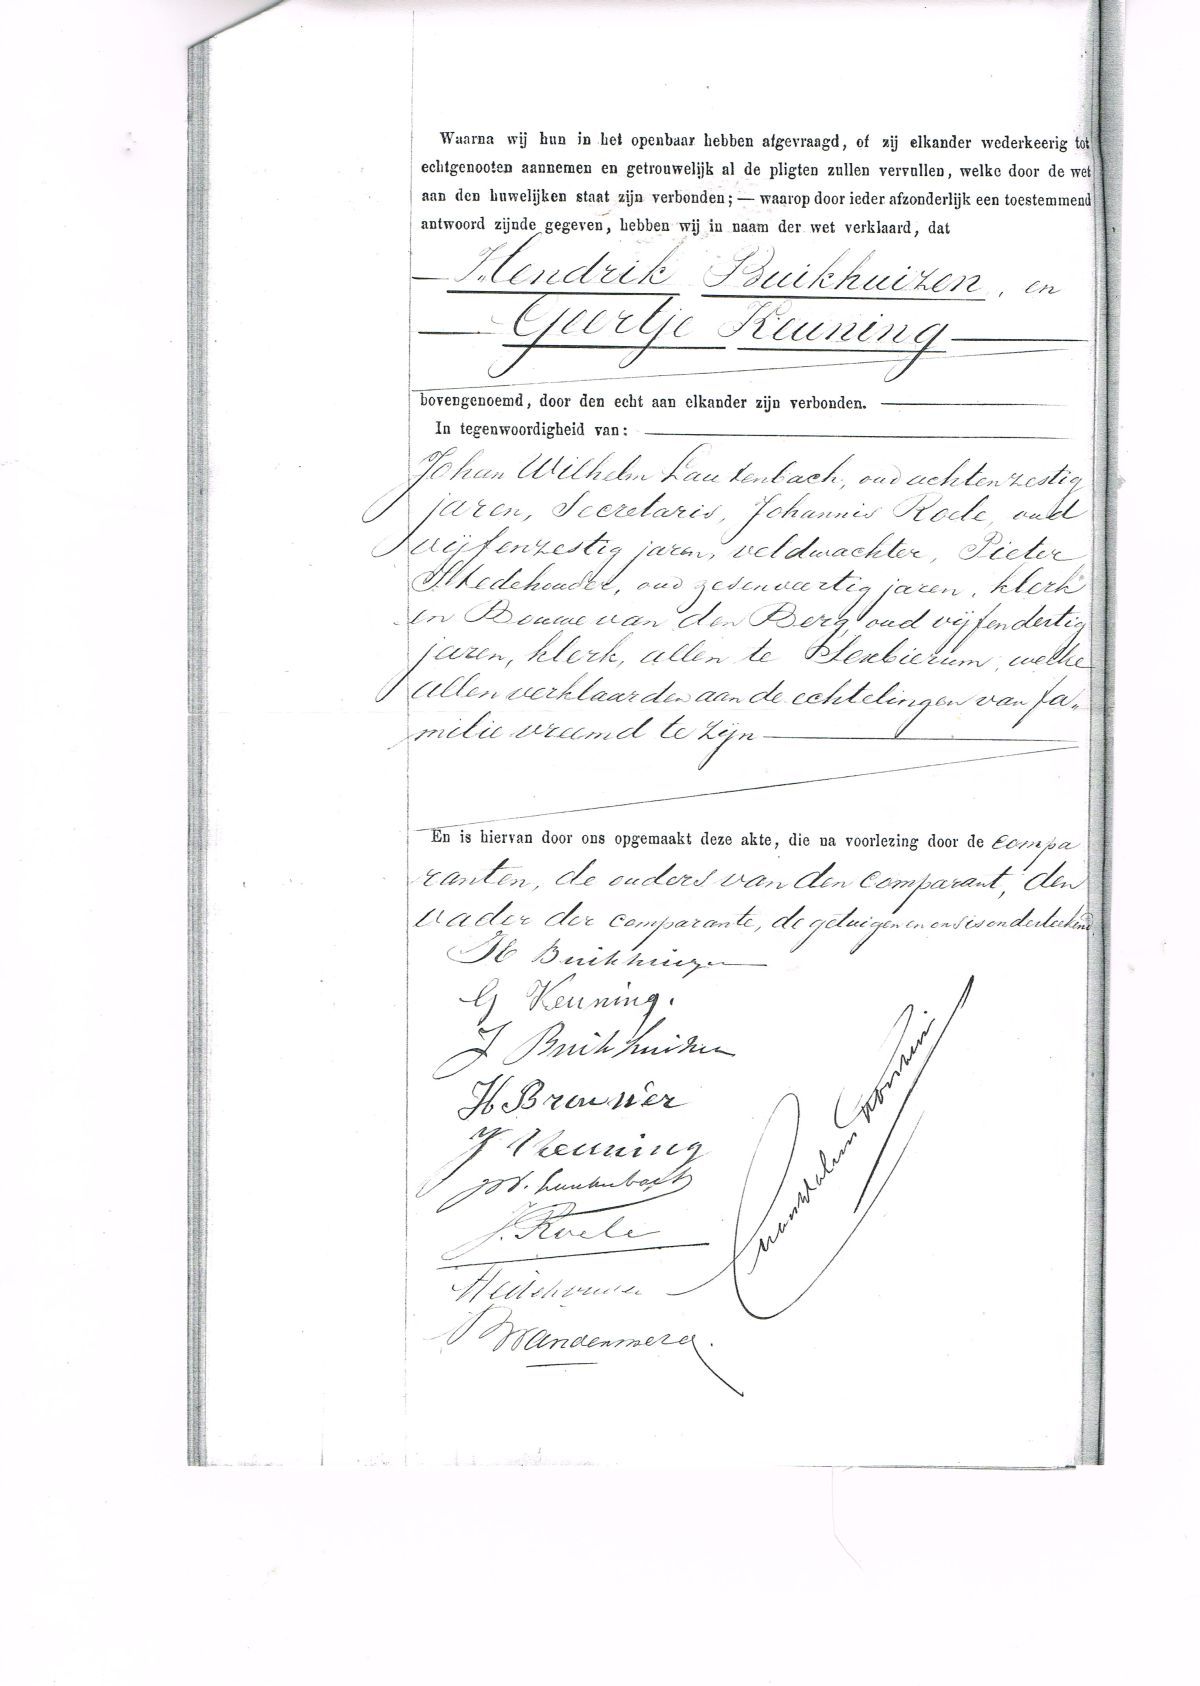 Waarna wij hun in het openbaar hebben afgevraagd, of zij elkander wederkeerig tot
echtgenooten aannemen en getrouwelijk al de pligten zullen vervullen, welke door de wet
aan den huwelijken staat zijn verbonden; — waarop door ieder afzonderlijk een toestemmend
antwoord zijnde gegeven, hebben wij in naam der wet verklaard, dat
Hendrik Buikhuizen, en
Geertje Keuning
bovengenoemd, door den echt aan elkander zijn verbonden.
In tegenwoordigheid van:
Johan Wilhelm Lautenbach, oud achtenzestig
jaren, Secretaris, Johannis Roele, oud
vijfenzestig jaren, veldwachter, Pieter
Stedehouder, oud zesenveertig jaren, klerk
en Bouwe van den Berg, oud vijfendertig
jaren, klerk, allen te Sexbierum, welke
allen verklaarden aan de echtelingen van fa-
milie vreemd te zijn
En is hiervan door ons opgemaakt deze akte, die na voorlezing door de compa
ranten, de ouders van den comparant, den
vader der comparante, de getuigen en ons is onderteekend.
H Buikhuizen
G Keuning.
J Buikhuizen
H Brouwer
J Keuning
JW. Lautenbach
J. Roele
Stedehouder
B vandenberg.